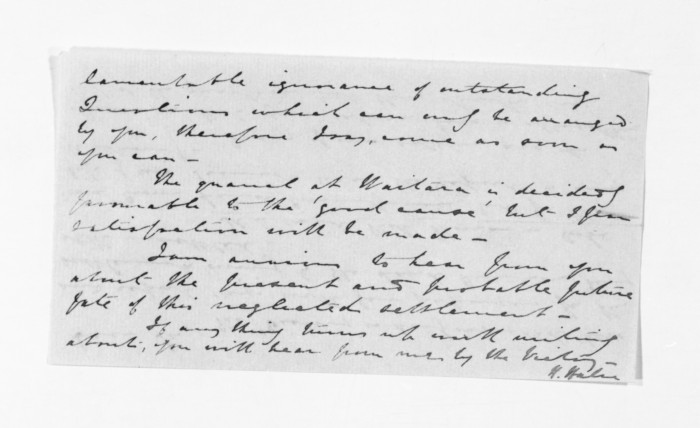 lamentable ignorance of outstanding
Questions which can only be arranged
by you, therefore I say, come as soon as
you can —
The quarrel at Waitara is decidedly
favourable to the 'good cause' but I fear
satisfaction will be made —
I am anxious to hear from you
about the present and probable future
fate of this neglected settlement —
If any thing turns up worth writing
about, you will hear from me by the
H. Halse